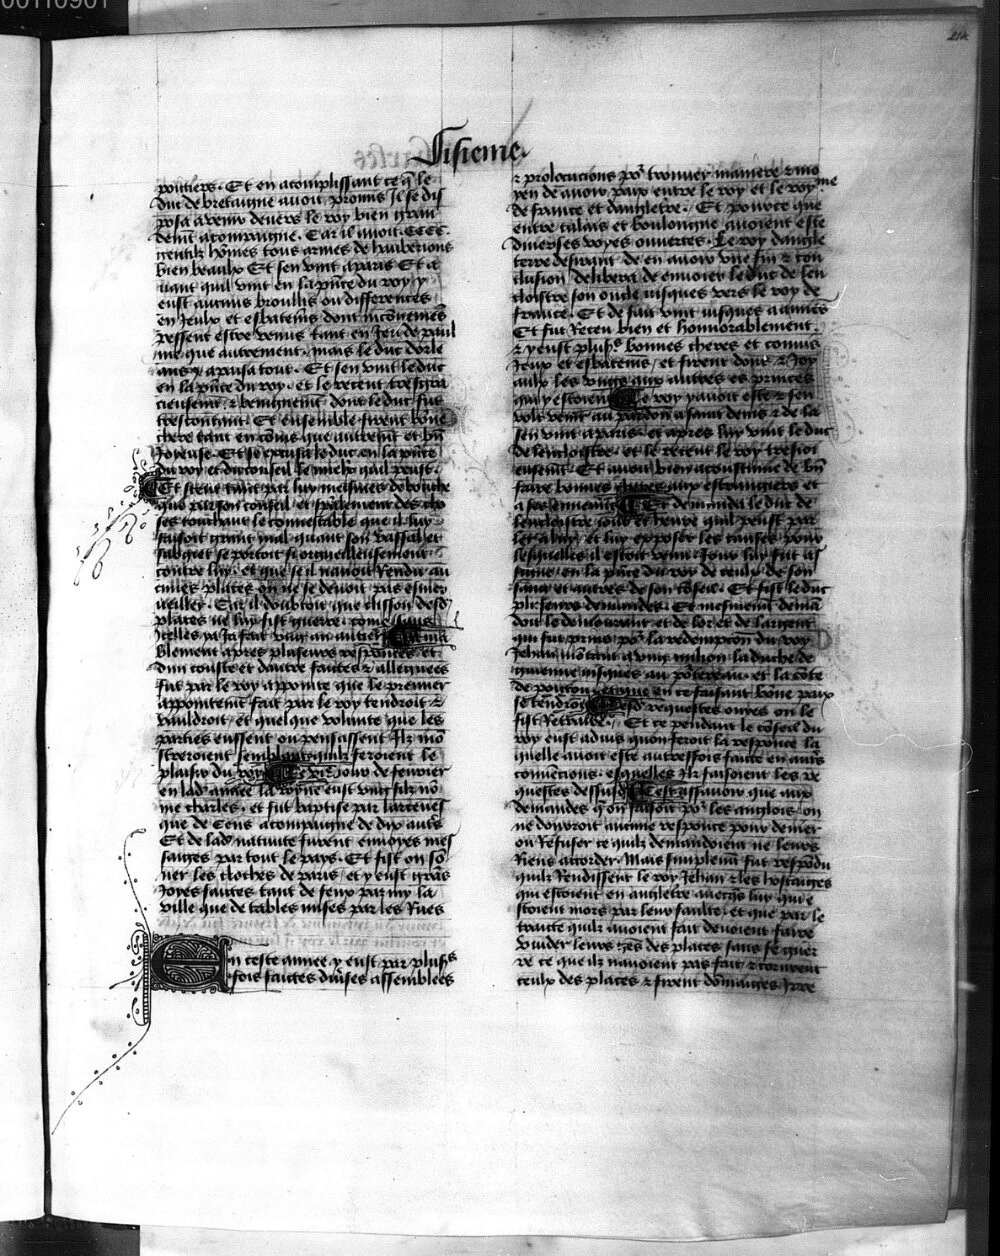 00110901
214
Sisieme.
poitiers. Et en acomplissant ce q̃ le
duc de bretaigne auoit promis Il se dis
posa a venir deuers le roy bien gran
demẽt acompaigne. Car il auoit. CCCC.
gentilz hõmes tous armes de haubergons
bien beaulx Et sen vint a paris Et a
uant quil vint en la pñce du roy y
eust aucuns broullis ou differences
en Jeulx et esbatemẽs dont inconueniens
peussent estre venus tant en Jeu de paul
me que autrement. mais le duc dorle
ans y apaisa tout. Et sen vint le duc
en la pñce du roy. et le receut tresgra
cieusemẽt ⁊ benignemẽt dont le duc fut
trescontent. Et ensemble firent bõne
chere tant en cõmũ que autremẽt et biẽ
Joyeuse. Et se excusa le duc en la pñce
du roy et du conseil le mielx quil peust.
Et sceut tant par luy mesmes de bouche
que par son conseil et sp̃alement des cho
ses touchant le connestable que il luy
faisoit grant mal quant son vassal et
subgiet se portoit si orgueilleusement
contre luy. et que se il nauoit Rendu au
cunes places on ne se deuoit pas esmer
ueiller. Car il doubtoit que clisson desd̃
places ne luy fist guerre. cõme dans
Icelles ya Ja fait vng an au
blement apres plusieurs responces et
dun coste et dautre faictes ⁊ alleguees
fut par le roy appointe que le premier
appointemẽt fait par le roy tendroit ⁊
vauldroit. et quelque volunte que les
parties eussent ou pensassent Ilz mõ
streroient semblant quilz feroient le
plaisir du roy Le vi.e Jour de feurier
en lad̃ annee la royne eust vng filz nõ
me charles. et fut baptise par larceues
que de Sens acompaigne de dix autr̃s
Et de lad̃ natiuite furent enuoyes mes
saiges par tout le pays. Et fist on sõ
ner les cloches de paris. et y eust grãs
Joyes faictes tant de feux parmy la
ville que de tables mises par les Rues
En ceste annee y eust par plus̃s
fois faictes diũses assemblees
⁊ prolocutions po᷑ trouuer maniere ⁊ mo
yen de auoir paix entre le roy et le royme
de france et dangletr̃e. Et pource que
entre calais et boulongne auoient este
diuerses voyes ouuertes. Le roy dangle
terre desirant de en auoir vne fin ⁊ con
clusion delibera de enuoier le duc de len
cloistre son oncle iusques vers le roy de
france. Et de fait vint iusques a amiẽs
Et fut Receu bien et honnorablement.
⁊ y eust plus̃s bonnes cheres et cõmũs
Jeux et esbatemẽs. et firent dons ⁊ Joy
aulx les vngs aux aultres es princes
qui y estoient Le roy y auoit este ⁊ sen
volt venir au pardon a saint denis ⁊ de la
sen vint a paris. et apres luy vint le duc
de lencloistre. et le receut le roy tresioi
eusemẽt. Et auoit bien acoustume de biẽ
faire bonnes cheres aux estrangiers et
a ses ennemis Et demanda le duc de
lencloistre Jour et heure quil peust par
ler a luy. et luy exposer les causes pour
lesquelles il estoit venu. Jour luy fut as
signe en la pñce du roy de ceulx de son
sang et autres de son cõseil. Et fist le duc
plus̃eurs demandes. Et mesmemt demã
doit le demourant et de lor et de largent
qui fut prins po᷑ la redempcion du roy
Jehan mõtant a vng milion la duche de
guienne iusques au poiteuau. et la cõte
de poitou et que en ce faisant bõne paix
se tendroit Lesd̃ requestes ouyes on le
fist Retraire. Et ce pendant le cõseil du
roy eust aduis quon feroit la responce la
quelle auoit este autreffois faicte en autr̃s
conuencions. esquelles Ilz faisoient les re
questes dessusd̃. Cest assauoir que aux
demandes q̃ on faisoit po᷑ les anglois on
ne donroit aucune responce pour denier
ou Refuser ce quilz demandoient ne leurs
Riens accorder. Mais simplemẽt fut respõdu
quilz Rendissent le roy Jehan ⁊ les hostaiges
qui estoient en angletr̃e auecq̃s luy qui e
stoient mors par leur faulte. et que par le
traicte quilz auoient fait deuoient faire
vuider leurs gẽs des places sans fẽ guer
re ce que ilz nauoient pas fait. ⁊ tourirent
ceulx des places ⁊ firent dõmaiges Irre